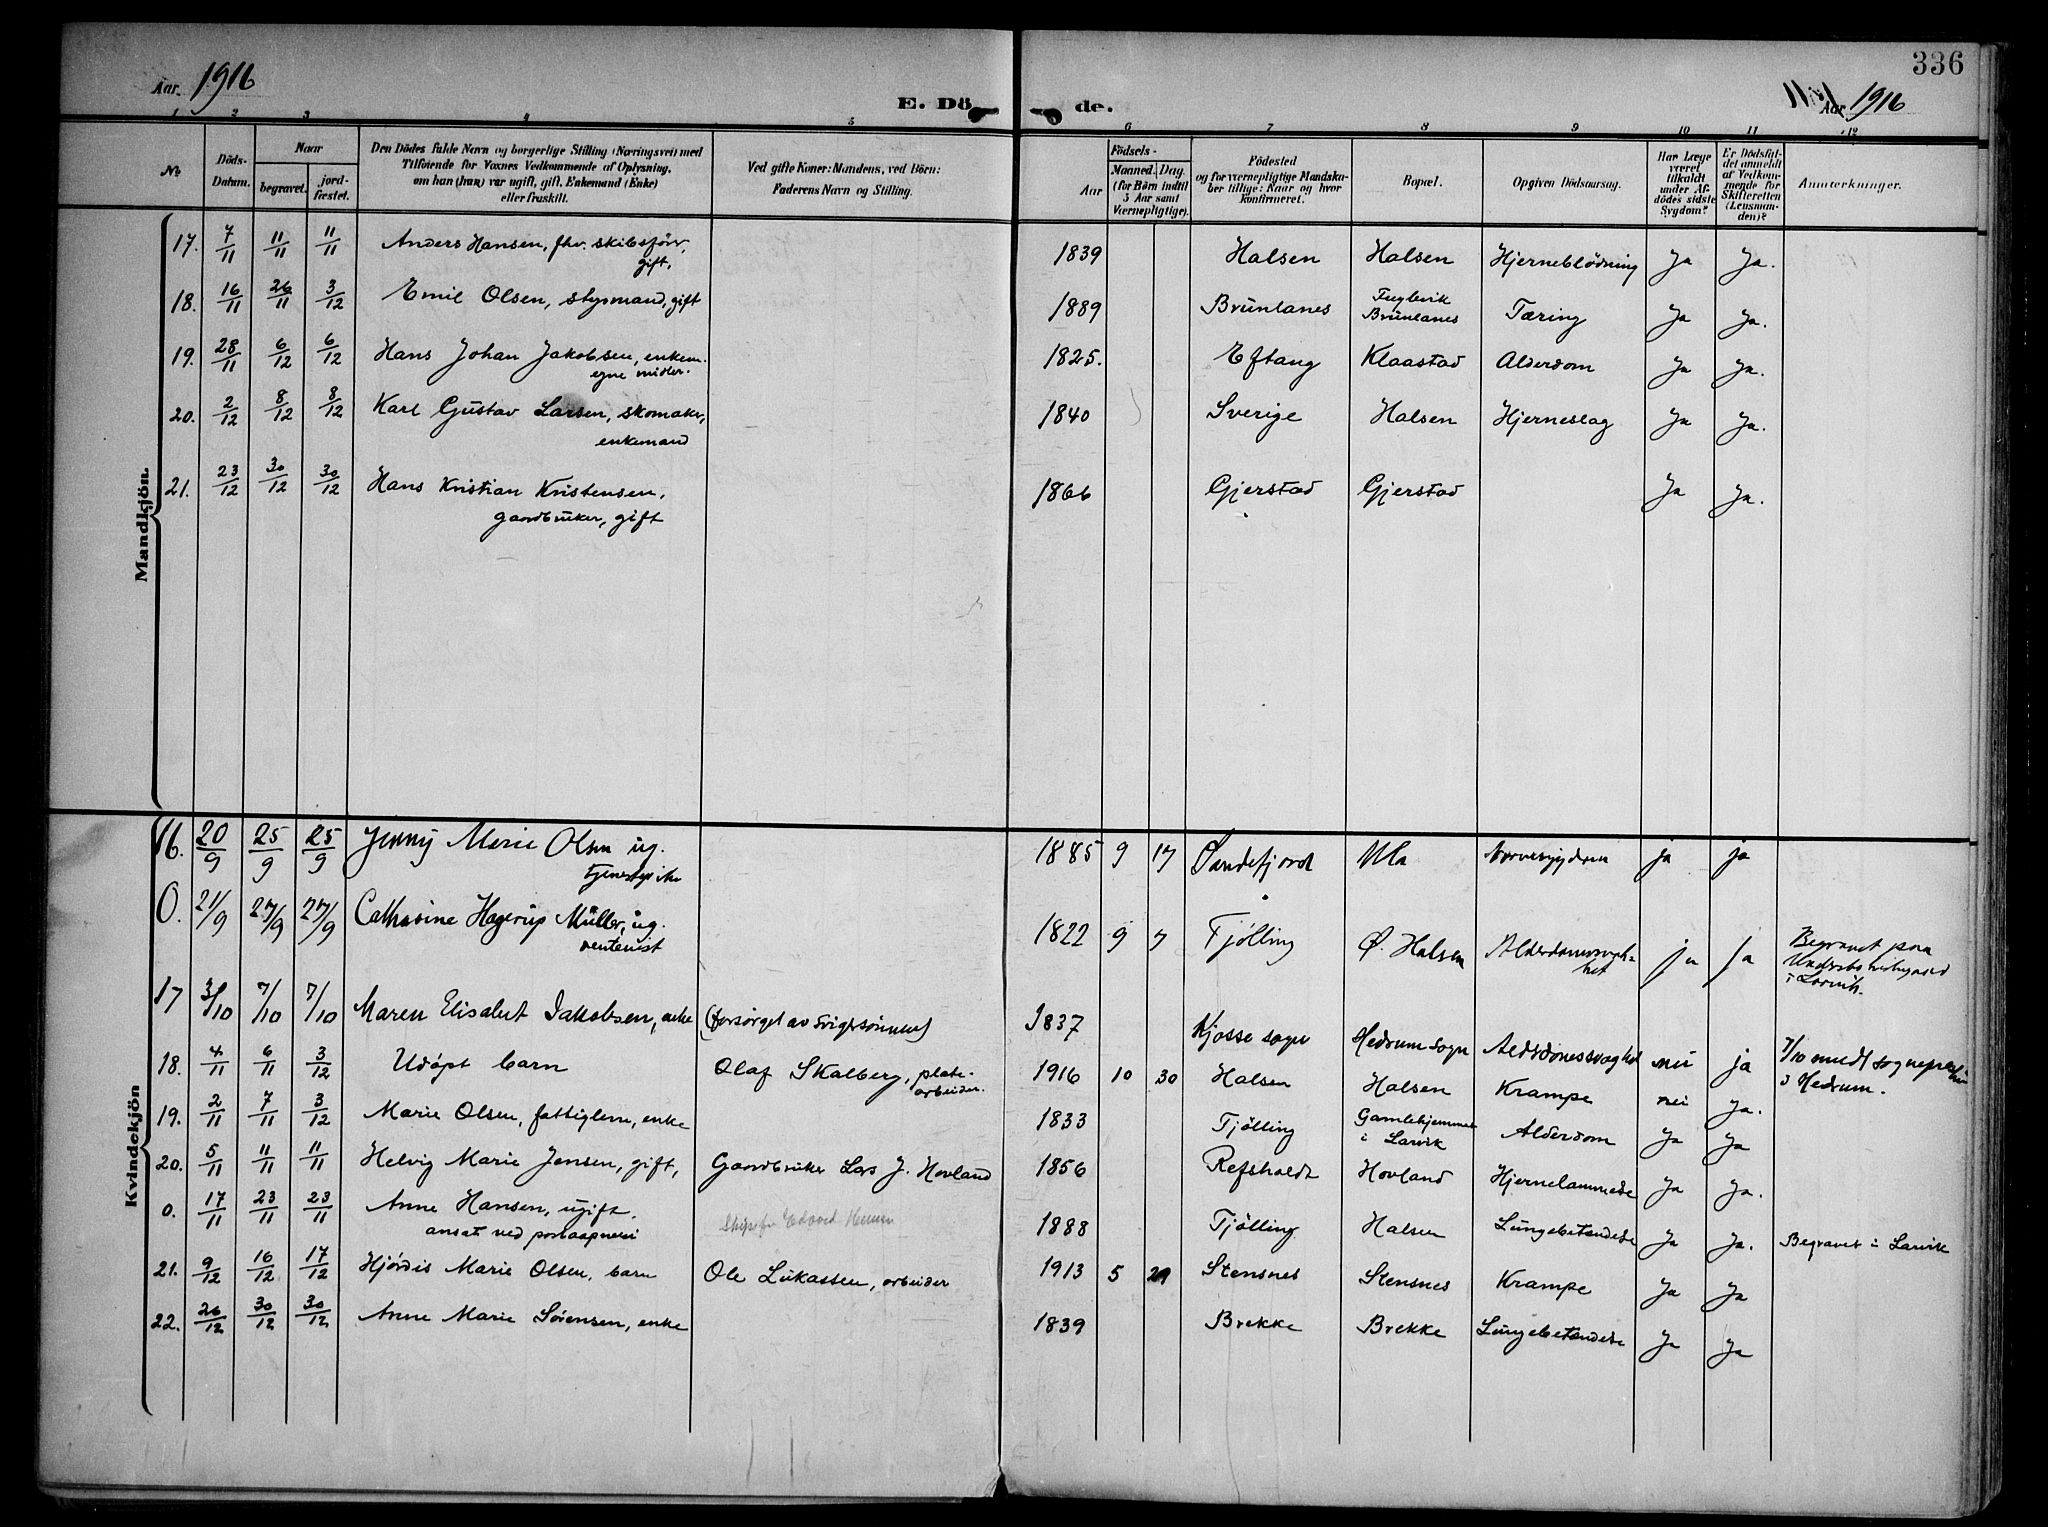 336
Aar 1916
E. Dö de.
Aar 1916
1 2 3 4 5 6 7 8 9 10 11 12
No Döds-Datum. Naar begravet. jordfæstet.
Den Dödes fulde Navn og borgerlige Stilling (Næringsvei) med
Tilföiende for Voxnes Vedkommende af Oplysning,
om han (hun) var ugift, gift, Enkemand (Enke)
eller fraskilt.
Ved gifte Koner: Mandens, ved Börn:
Faderens Navn og Stilling.
Födsels-
Aar Maaned. Dag.
(for Börn indtil
5 Aar samt
Værnepligtige).
Födested
og for værnepligtige Mandska-
ber tillige: Naar og hvor
konfirmeret.
Bopæl.
Opgiven Dödsaarsag.
Har Læge
været
tilkaldt
under Af-
dödes sidste
Sygdom?
Er Dödsfal-
det anmeldt
af Vedkom-
mende for
Skifteretten
(Lensman-
den)?
Anmærkninger.
Mandkjön.
17. 7/11 11/11 11/11 Anders Hansen, fhv. skibsförer, 1839 Halsen Halsen Hjerneblödning Ja Ja.
gift,
18. 16/11 26/11 3/12 Emil Olsen, styrmand, gift 1889 Brunlanes Fuglevik Tæring Ja Ja.
Brunlanes
19. 28/11 6/12 6/12 Hans Johan Jakobsen, enkem. 1825. Eftang Klaastad Alderdom Ja Ja.
egne midler.
20. 2/12 8/12 8/12 Karl Gustav Larsen, skomaker, 1840 Sverige Halsen Hjerneslag Ja Ja.
enkemand
21. 23/12 30/12 30/12 Hans Kristian Kristensen, 1866 Gjerstad Gjerstad Ja Ja.
gaardbruker, gift
Kvindekjön
16. 20/9 25/9 25/9 Jenny Marie Olsen ug. 1885 9 17 Sandefjord Ula Nervesygdom ja ja
tjenestepike
0. 21/9 27/9 27/9 Catharine Hagerup Müller, ug. 1822 9 7 Tjölling Ø. Halsen Alderdomssvag- ja ja Begravet paa
rentenist het Undersbo kirkegaard
i Larvik.
17 3/10 7/10 7/10 Maren Elisabet Jakobsen, enke (forsörget av svigersönnen) 1837 Kjosse sogn Hedrum sogn Alderdomssvaghet nei ja 7/10 meldt sogneprest
i Hedrum.
18. 4/11 6/11 3/12 Udöpt barn Olaf Skalberg, plate- 1916 10 30 Halsen Halsen Krampe nei Ja.
arbeider.
19. 2/11 7/11 3/12 Marie Olsen, fattiglem, enke 1833 Tjölling Gamlehjemmet Alderdom Ja Ja
i Larvik
20. 5/11 11/11 11/11 Helvig Marie Jensen, gift, Gaardbruker Lars J. Hovland 1856 Refsholdt Hovland Hjernelammelse Ja Ja.
0. 17/11 23/11 23/11 Anne Hansen, ugift. 1888 Tjölling Halsen Lungebetændelse Ja Ja. Begravet i Larvik
ansat ved postaapneri
21. 9/12 16/12 17/12 Hjördis Marie Olsen, barn Ole Lukassen, arbeider 1913 5 29 Stensnes Stensnes Krampe Ja Ja
22. 26/12 30/12 30/12 Anne Marie Sörensen, enke 1839 Brekke Brekke Lungebetændelse Ja Ja